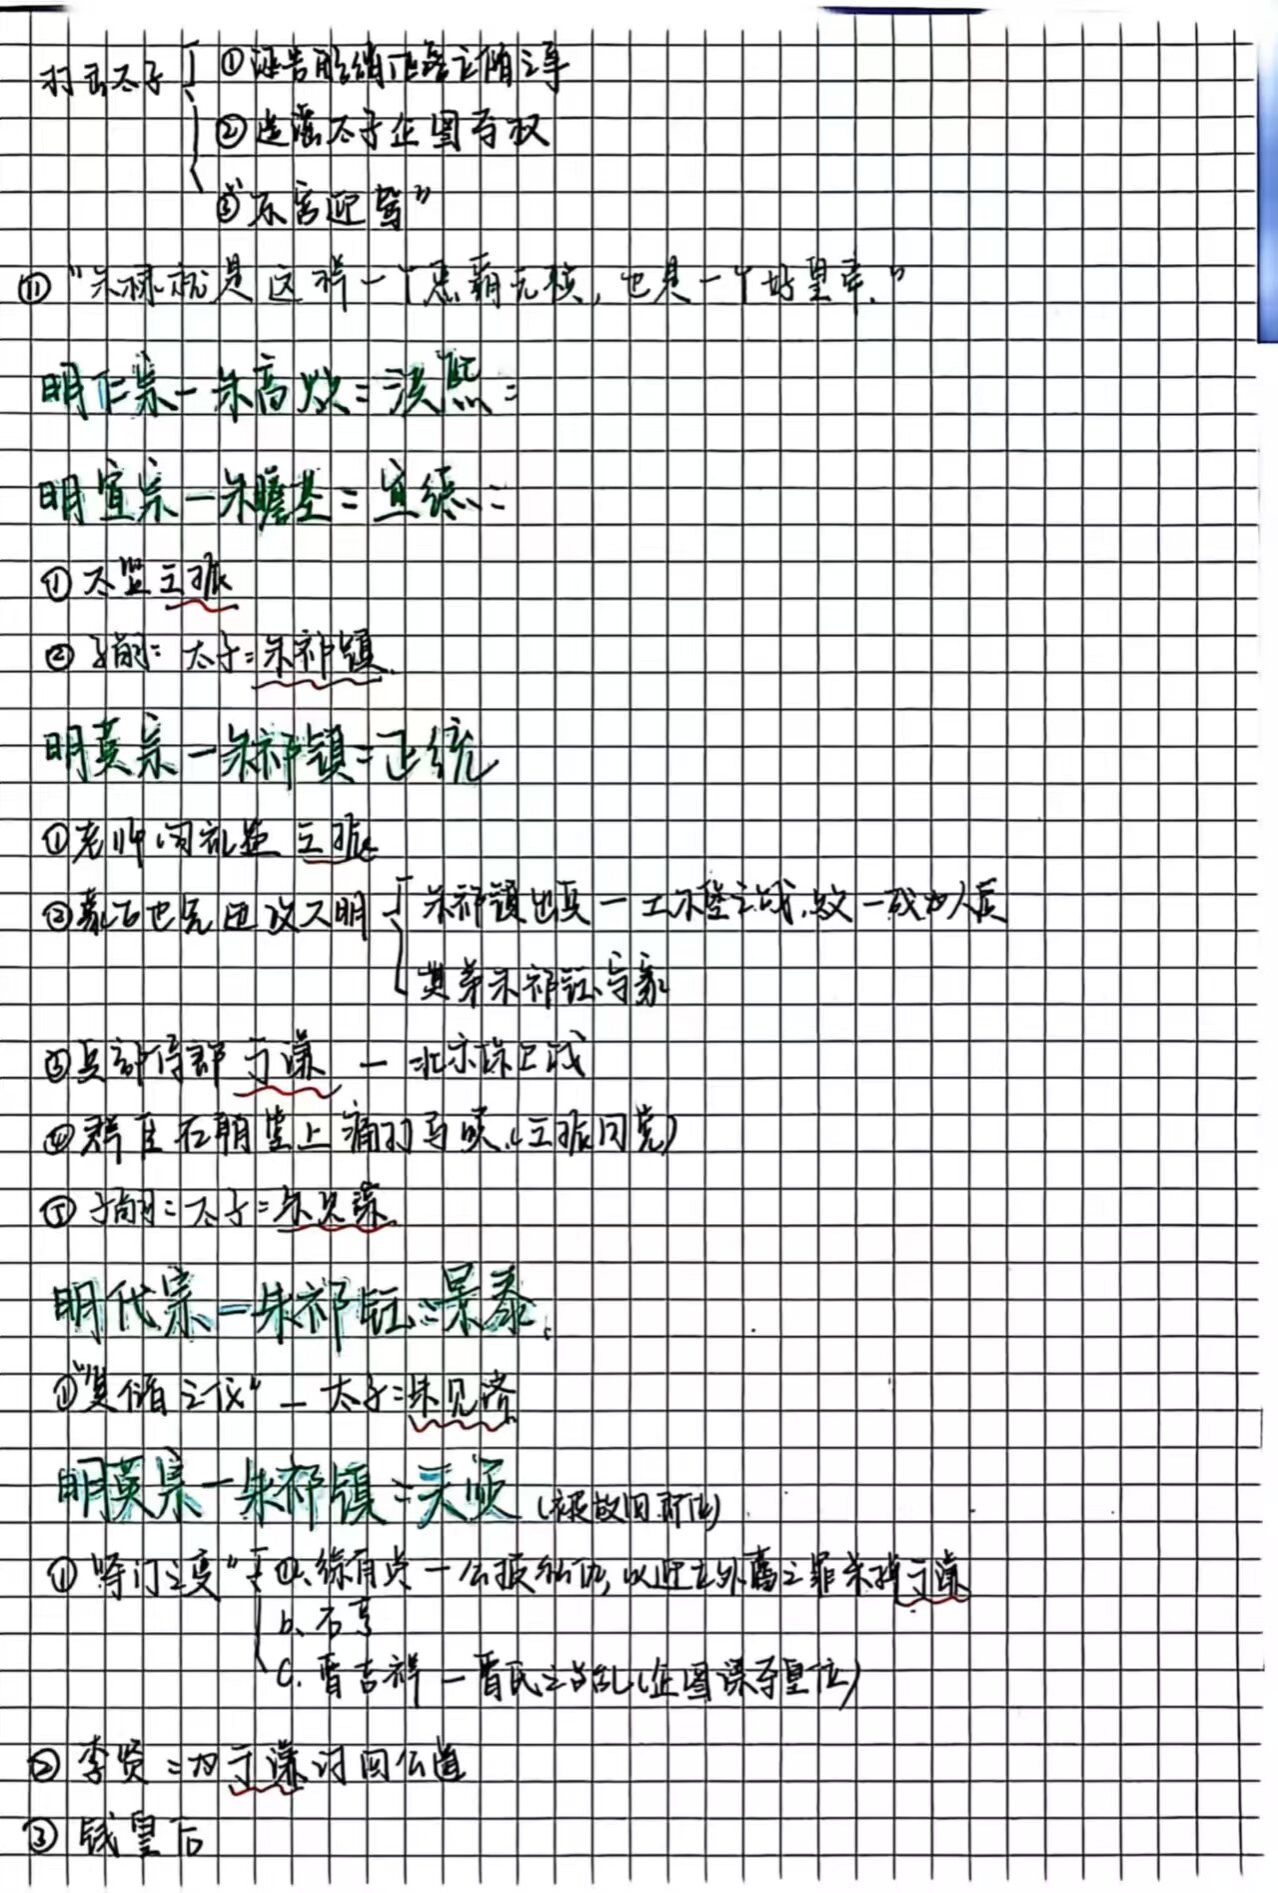 打击太子 ①诬告解缙
②造谣太子企图夺权
③“不宫迎驾”
⑪“朱棣就是这样一个恶霸无赖，也是一个好皇帝。”
明仁宗－朱高炽＝洪熙＝
明宣宗－朱瞻基＝宣德＝
①太监王振
②子嗣＝太子＝朱祁镇
明英宗－朱祁镇＝正统
①老师 王振
②蒙古也先进攻大明 朱祁镇出 — 土木堡之战，败—成为人质
其弟朱祁钰守家
③兵部侍郎于谦 — 北京保卫战
④群臣在朝堂上痛打马顺（王振同党）
⑤子嗣＝太子＝朱见
明代宗－朱祁钰＝景泰。
①“ 储之议”— 太子＝朱见济
明英宗－朱祁镇＝天顺（ ）
①夺门之变” a.徐有贞—公报私仇，以迎立外藩之罪杀掉于谦
b.石亨
c.曹吉祥—曹氏之 乱（企图谋夺皇位）
②李贤＝为于谦讨回公道
③钱皇后